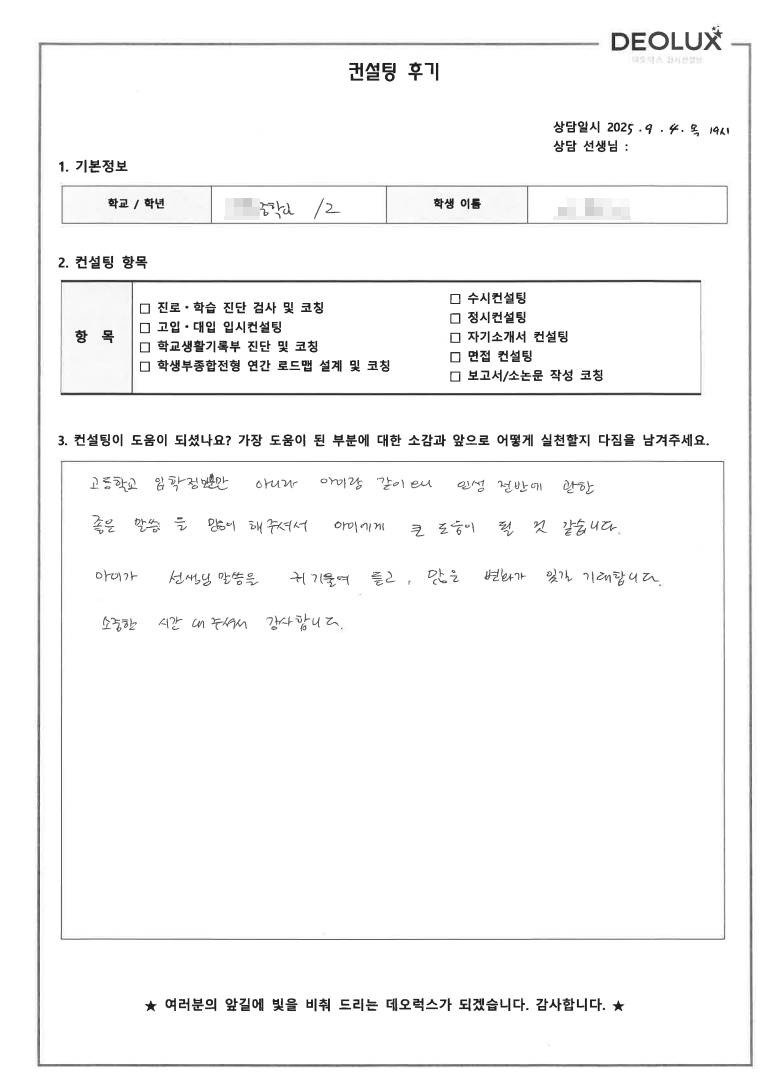 DEOLUX
데오럭스 입시컨설팅
컨설팅 후기
상담일시 2025.9.4.목 19시
상담 선생님 :
1. 기본정보
학교 / 학년
중학교 /2
학생 이름
2. 컨설팅 항목
항 목
□ 진로·학습 진단 검사 및 코칭
□ 고입·대입 입시컨설팅
□ 학교생활기록부 진단 및 코칭
□ 학생부종합전형 연간 로드맵 설계 및 코칭
□ 수시컨설팅
□ 정시컨설팅
□ 자기소개서 컨설팅
□ 면접 컨설팅
□ 보고서/소논문 작성 코칭
3. 컨설팅이 도움이 되셨나요? 가장 도움이 된 부분에 대한 소감과 앞으로 어떻게 실천할지 다짐을 남겨주세요.
고등학교 입학정보뿐만 아니라 아이랑 같이 인성 전반에 관한
좋은 말씀을 많이 해주셔서 아이에게 큰 도움이 될 것 같습니다.
아이가 선생님 말씀을 귀 기울여 듣고, 많은 변화가 있길 기대합니다.
소중한 시간 내 주셔서 감사합니다.
★ 여러분의 앞길에 빛을 비춰 드리는 데오럭스가 되겠습니다. 감사합니다. ★